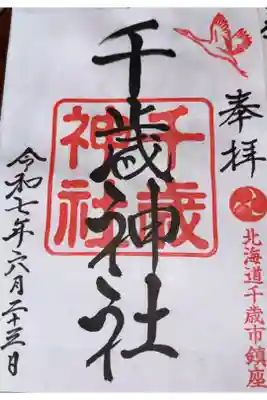 奉拝
北海道千歳市鎮座
千歳神社
千歳
神社
令和七年六月二十三日